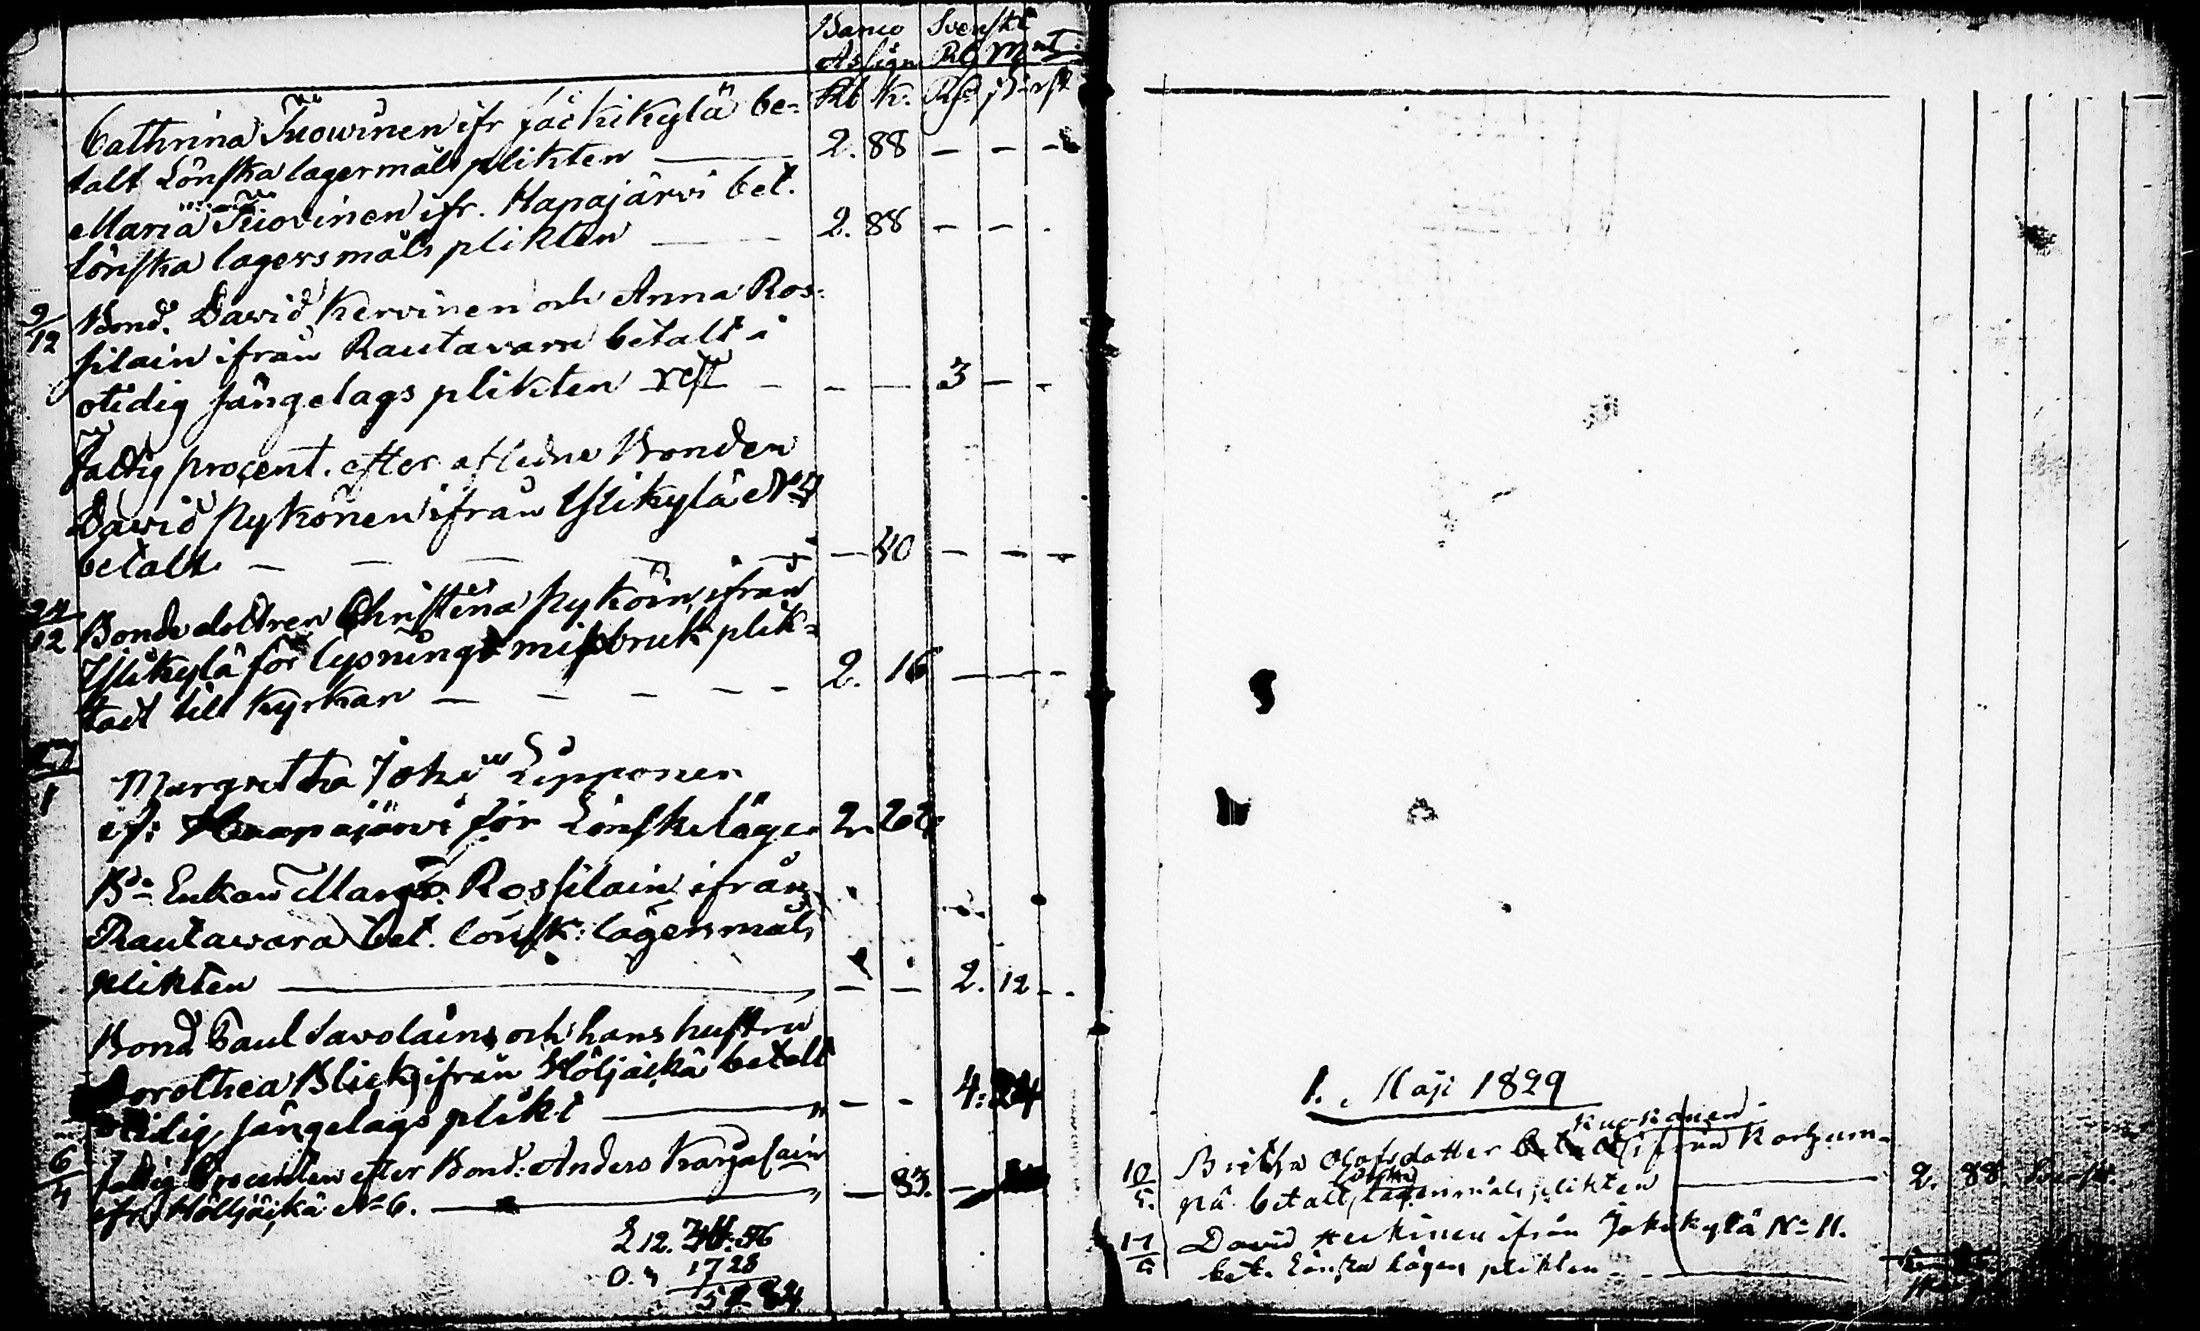 Banco Svenskt
Assign. Rg Mnt
Rb k. Rd ß rst
Cathrina Tuowinen ifr Jäckikylä be-
talt Lönska lagermåls plikten — 2. 88 — — —
Maria Tuovinen ifr. Hapajärvi bet.
lönska lagersmåls plikten — 2. 88 — — -
9/12 Bond. David Kervinen och Anna Ros-
silain ifrån Rautavara betalt i
otidig sängelags plikten rest — — — 3 — -
Fattig procent. efter aflidne Bonden
David Pykönen ifrån Ylikylä No 7
betalt — — — — — 40 — — —
24/12 Bonde dottren Christina Pyköin, ifrån
Ylikylä för lysnings missbruk plik-
tadt till Kyrkan — — — — — 2. 16 — — -
27/1 Margretha Joh Lipponen
if: Haapajärvi för Lönskeläger 2.
Bd Enkan Margr. Rossilain ifrån
Rautawara bet. lönsk: lägersmåls
plikten — — — 2. 12 - -
Bond Paul Savolain och hans hustru
Dorothea Blick ifrån Höljäikä betalt
otidig sängelags plikt — " — - 4: 24
6/4 Fattig Procenten efter Bond: Anders Karjalain
ifr. Höljäikä No 6. — " — 83. —
12.
17 28
1. Maji 1829
Kuokanen
10/5. Britha Olofsdotter ifrån Karhum-
lönska
pä betalt lägersmåls plikten — 2. 88.
17/5 David ifrån Jokikylä No 11.
bet. Lönska lägers plikten - - —